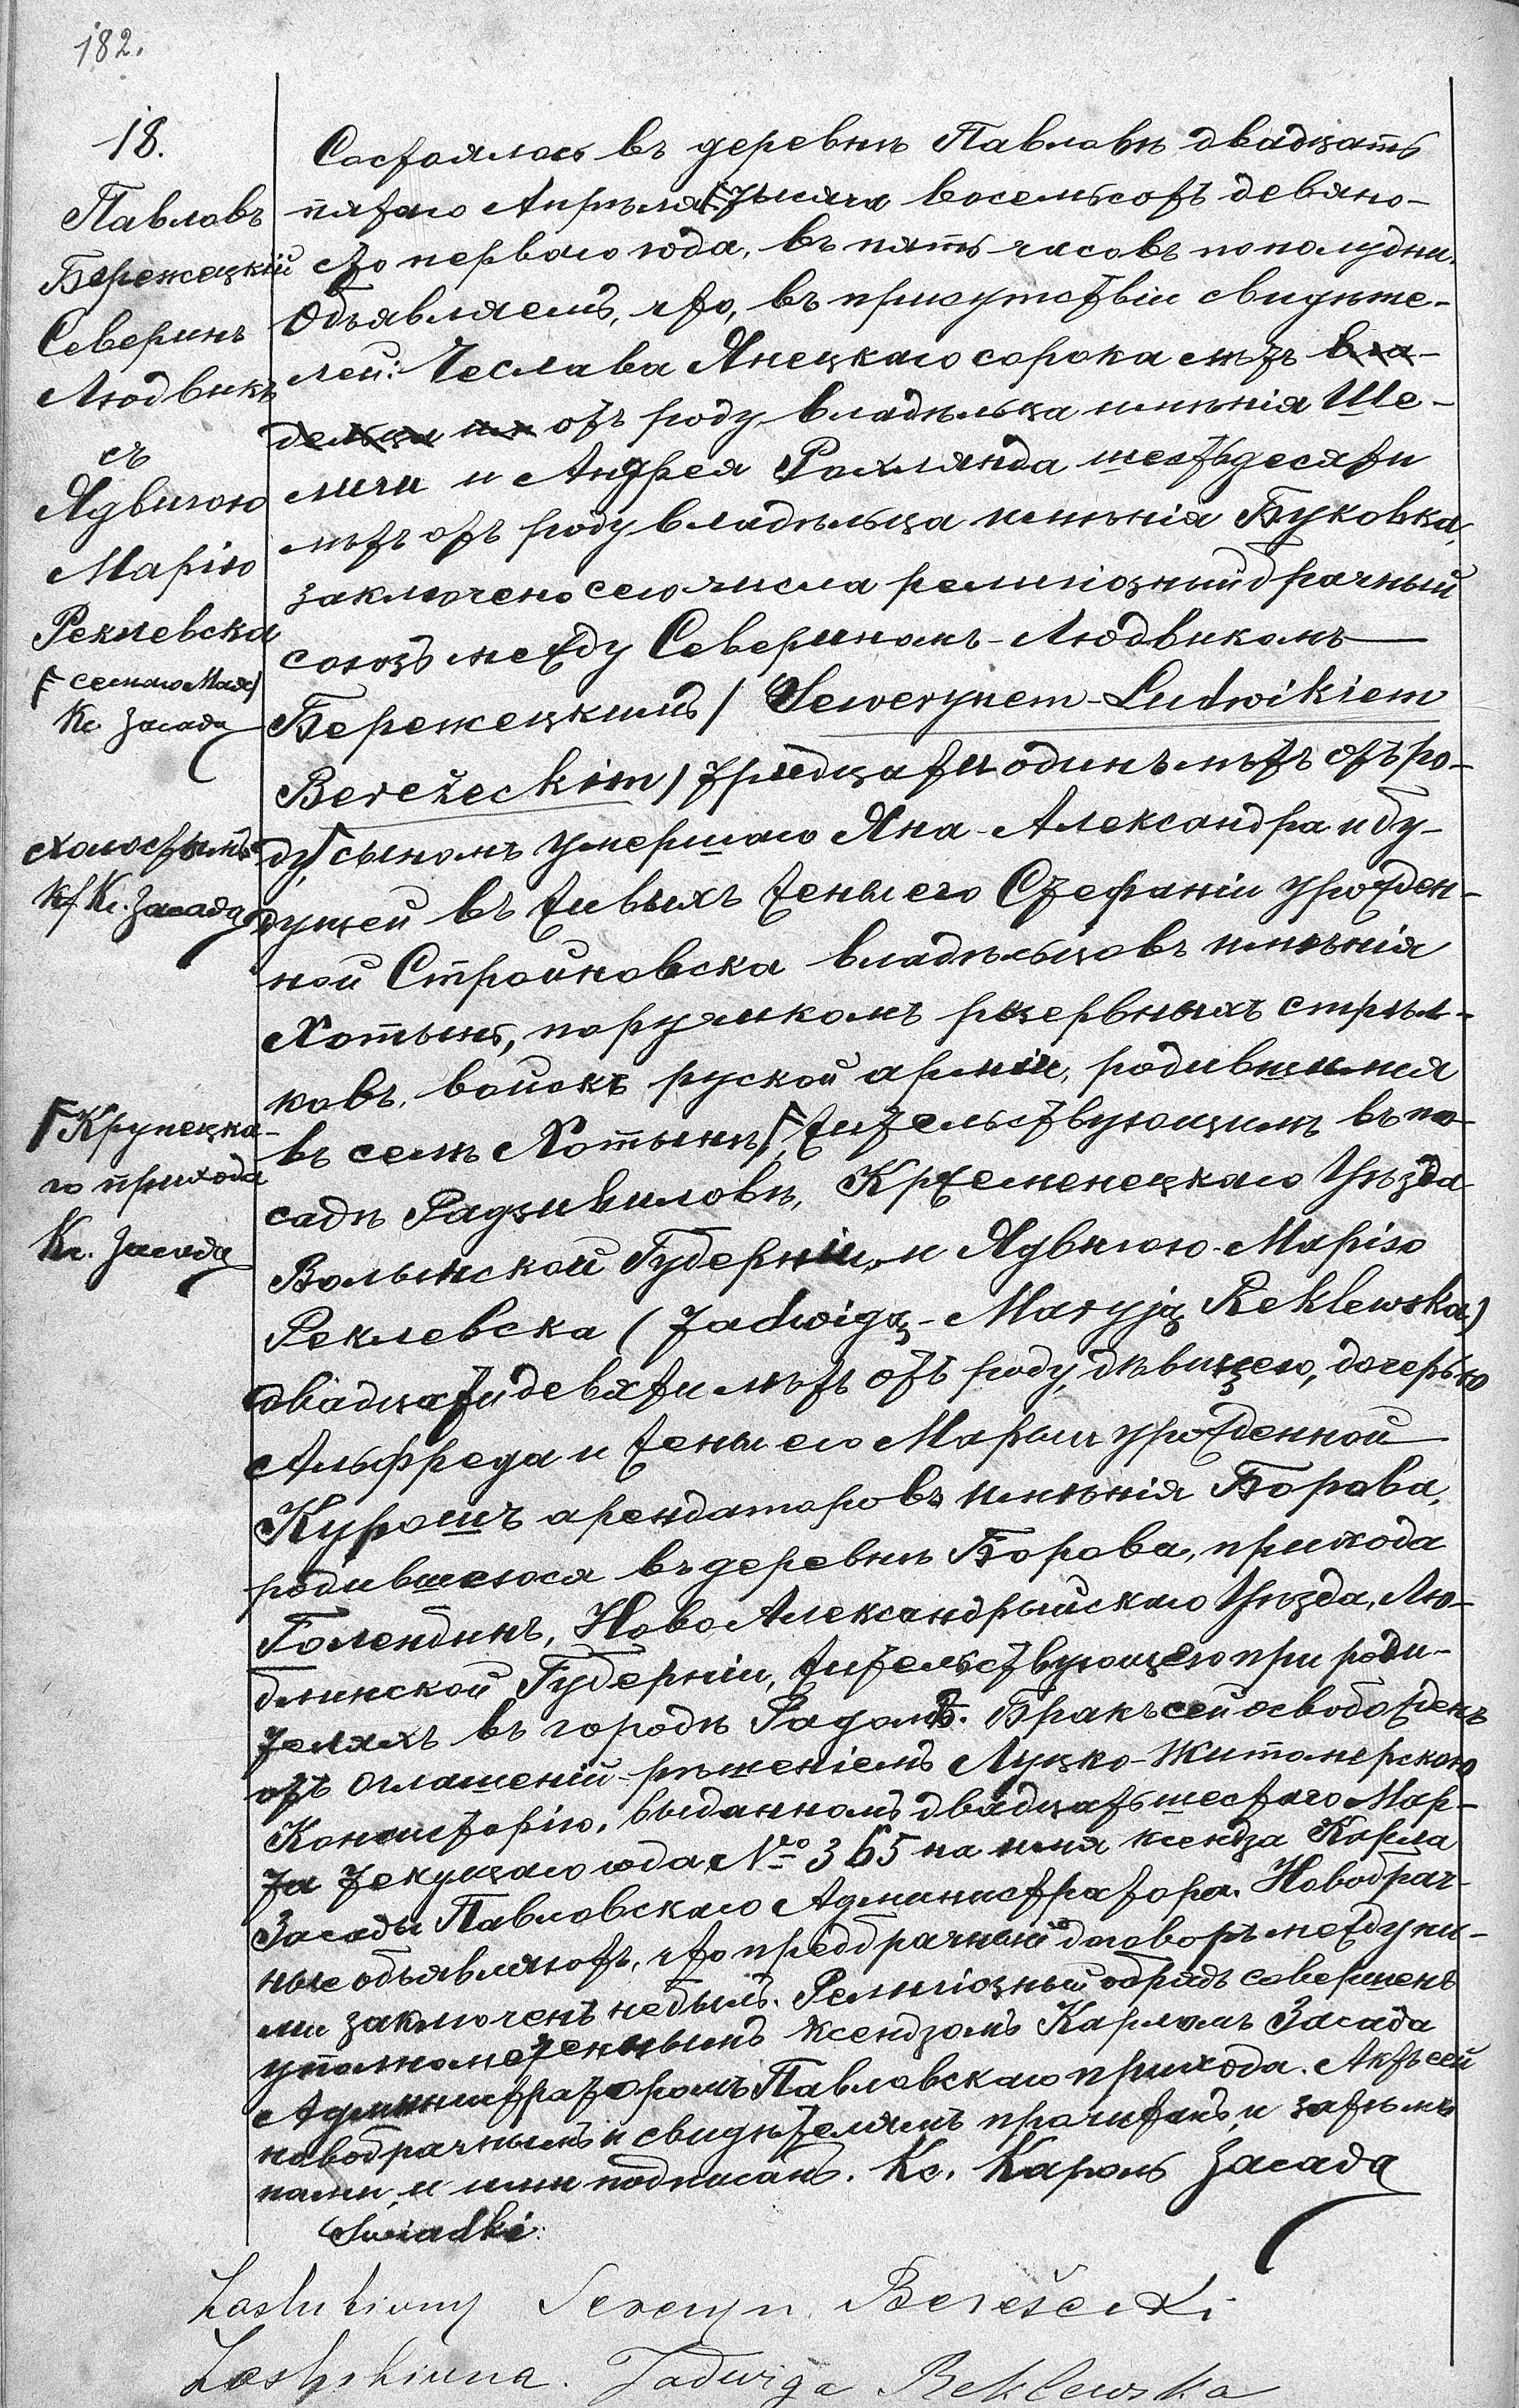 182.
18.
Павловъ
Бережецкій
Северинъ
Людвикъ
съ
Ядвигою
Марію
Реклевска
/ семаго Мая/
Кс Засада
холостымъ
Кс. Засада
Крупецка-
го прихода
Кс. Засада
Состоялось въ деревнѣ Павловѣ двадцать
пятаго Апрѣля/ тысяча восемьсотъ девяно-
сто перваго года, въ пять часовъ пополудни.
Объявляемъ, что, въ присутствіи свидѣте-
лей: Чеслава Янецкаго сорока лѣтъ вла-
дельца отъ роду владѣльца имѣнія Ше-
личи и Андрея Рохлянда шестьдесяти
лѣтъ отъ роду владѣльца имѣнія Буковка,
заключено сего числа религіозный брачный
союзъ между Севериномъ-Людвикомъ
Бережецкимъ / Sewerynem-Ludwikiem
Bereżeckim / тридцати одинъ лѣтъ отъ ро-
ду, сыномъ умершаго Яна-Александра и бу-
дущей въ живыхъ жены его Стефаніи урожден-
ной Стройновска владѣльцовъ имѣнія
Хотынь, поручикомъ резервныхъ стрѣл-
ковъ, войскъ руской арміи, родившимся
въ селѣ Хотынѣ, жительствующимъ въ по-
садѣ Радзивиловѣ, Кржеменецкаго Уѣзда
Волынской Губерніи, и Ядвигою-Марію
Реклевска (Jadwigą-Maryją Reklewska)
двадцати девяти лѣтъ отъ роду, дѣвицею, дочерью
Альфреда и жены его Марыи урожденной
Курошъ арендаторовъ имѣнія Борова,
родившеюся въ деревнѣ Борова, прихода
Голендинъ, Ново Александрыйскаго Уѣзда, Лю-
блинской Губерніи, жительствующею при роди-
теляхъ въ городѣ Радомѣ. Бракъ сей освобожденъ
отъ оглашеній рѣшеніемъ Луцко-Житомерскою
Консисторію, выданномъ двадцать шестаго Мар-
та текущаго года № 365 на имя ксендза Карла
Засады Павловскаго Администратора. Новобрач-
ные объявляютъ, что предбрачный договоръ между ни-
ми заключенъ небылъ. Религіозный обрядъ совершенъ
уполномоченнымъ Ксендзомъ Карломъ Засада
Администраторомъ Павловскаго прихода. Актъ сей
новобрачнымъ и свидѣтелямъ прочитанъ, и затѣмъ
нами, и ими подписанъ. Кс. Кароль Засада
Świadki:
Zaslubiony Seweryn Bereżecki
Zaslubiona. Jadwiga Reklewska